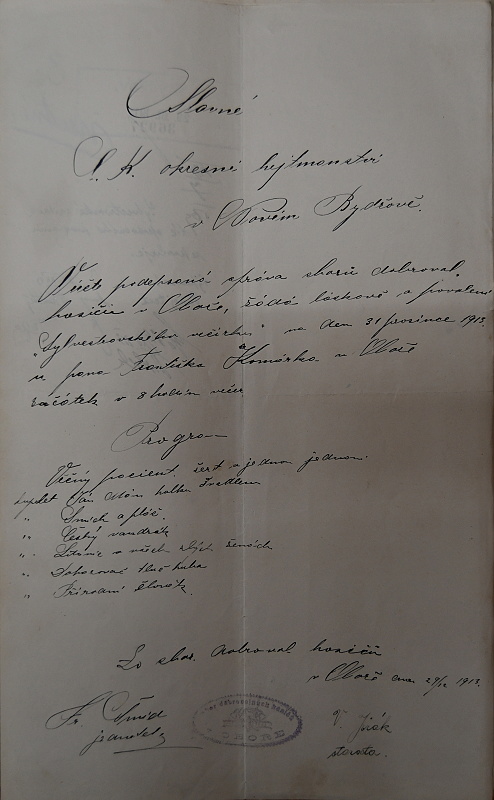 Slavné
C. K. okresní hejtmanství
v Novém Bydžově.
V úctě podepsaná správa sboru dobrovol.
hasičů v Oboře, žádá laskavě o povolení
"Sylvestrovského večírku" na den 31 prosince 1913.
u pana Františka Komárka v Oboře
začátek v 8 hodin večer
Program
Věčný pacient, žert o jednom jednání
kuplet Já mám holku švadlenu
" Smích a pláč.
" Český vandrák
" o všech ženách
" huba
" Přírodní člověk.
Za sbor dobrovol hasičů
v Oboře dne 29/12 1913.
Fr. Šmíd
jednatel
V. Jirák
starosta.
OBOŘE